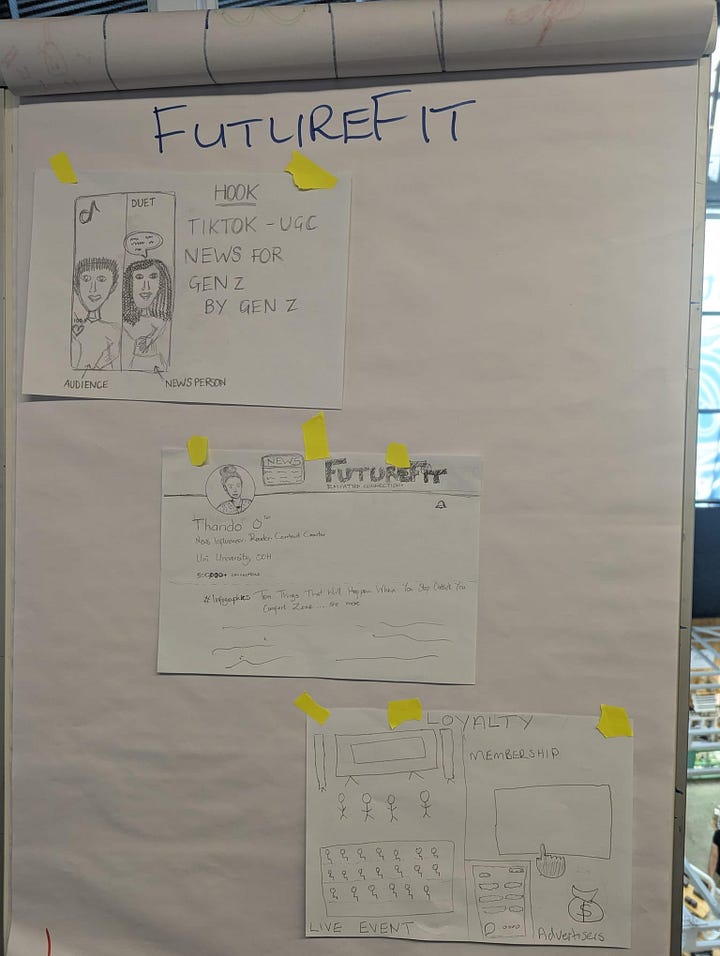 FUTUREFIT
DUET
HOOK
TIKTOK - UGC
NEWS FOR
GEN Z
BY GEN Z
AUDIENCE
NEWSPERSON
NEWS
FUTUREFIT
Thando O
News Influencer, Reader, Content Creator
Uni University, SOH
500,000+
#Infographics Ten Things That Will Happen When You Step Outside You
Comfort Zone ... see more
LOYALTY
MEMBERSHIP
LIVE EVENT
$
Advertisers